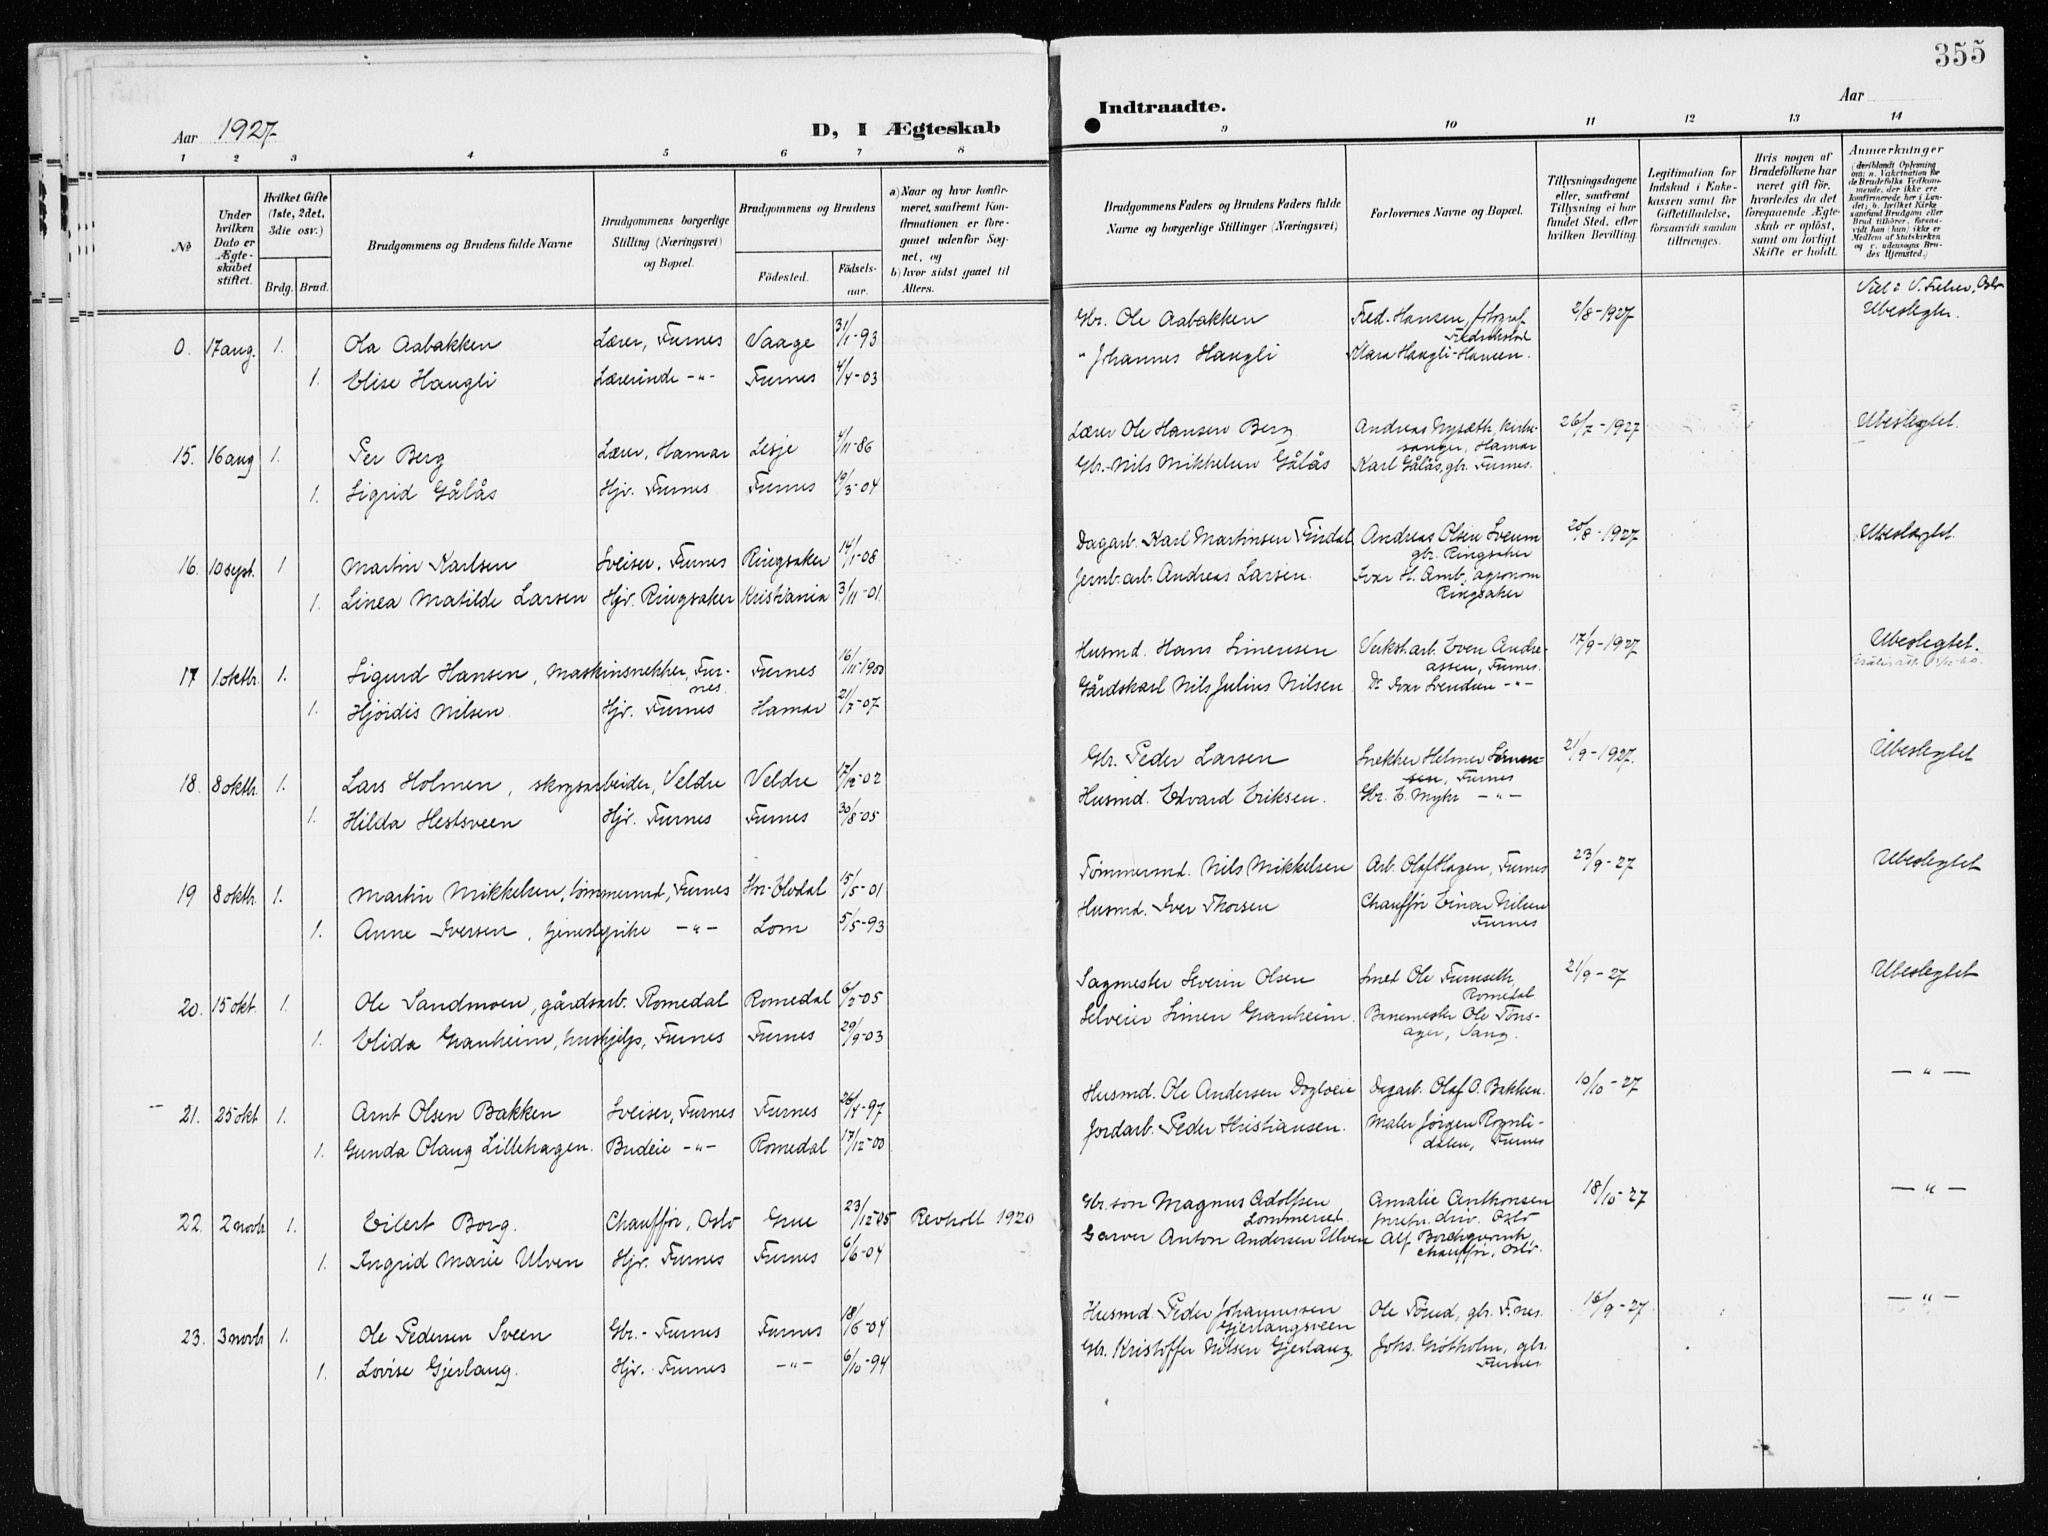 355
Aar 1927.
D, I Ægteskab
Indtraadte.
Aar
1 2 3 4 5 6 7 8
9 10 11 12 13 14
No
Under hvilken Dato er Ægteskabet stiftet.
Hvilket Gifte (1ste, 2det, 3die osv.)
Brdg. Brud.
Brudgommens og Brudens fulde Navne
Brudgommens borgerlige Stilling (Næringsvei) og Bopæl.
Brudgommens og Brudens
Födested.
Födselsaar.
a) Naar og hvor konfirmeret, saafremt Konfirmationen er foregaaet udenfor Sognet, og
b) hvor sidst gaaet til Alters.
Brudgommens Faders og Brudens Faders fulde Navne og borgerlige Stillinger (Næringsvei)
Forlovernes Navne og Bopæl.
Tillysningsdagene eller, saafremt Tillysning ei har fundet Sted, efter hvilken Bevilling.
Legitimation for Indskud i Enkekassen samt for Giftetilladelse, forsaavidt saadan tiltrænges.
Hvis nogen af Brudefolkene har været gift för, hvorledes da det foregaaende Ægteskab er oplöst, samt om lovligt Skifte er holdt.
Anmærkninger
0. 17 aug. 1. Ola Aabakken Lærer, Furnes Vaage 31/1-93 Gbr. Ole Aabakken Fred. Hansen, fotograf Fredrikstad 2/8-1927 Ubeslegtet.
1. Elise Haugli Lærerinde -"- Furnes 4/4-03 " Johannes Haugli Klara Haugli-Hansen.
15. 16 aug 1. Per Berg Lærer, Hamar Lesje 4/11-86 Lærer Ole Hansen Berg Andreas Nysæth, kirkesanger, Hamar 26/7-1927 Ubeslegtet.
1. Sigrid Gålås Hjv. Furnes Furnes 19/3-04 Gbr. Nils Mikkelsen Gålås Karl Gålås, gbr. Furnes.
16. 10 sept. 1 Martin Karlsen Sveiser, Furnes Ringsaker 14/1-08 Dagarb. Karl Martinsen Findal Andreas Olsen Sveum gbr. Ringsaker 20/8-1927 Ubeslegtet.
1. Linea Matilde Larsen Hjv. Ringsaker Kristiania 3/11-01 Jernb. arb. Andreas Larsen. Ivar H. Amb, agronom Ringsaker
17 1 oktbr. 1. Sigurd Hansen, maskinsnekker, Furnes. Furnes 16/11-1900 Husmd. Hans Simensen Verkst.arb. Even Andreassen, Furnes. 17/9-1927 Ubeslegtet.
1. Hjördis Nilsen. Hjv. Furnes Hamar 21/7-07 Gårdskarl Nils Julius Nilsen Do Ivar Svendsen -"-
18. 8 oktbr. 1. Lars Holmen, skogsarbeider, Veldre Veldre 17/12-02 Gbr. Peder Larsen Snekker Helmer Simensen, Furnes 21/9-1927. Ubeslegtet
1. Hilda Hestsveen Hjv. Furnes Furnes 30/8-05 Husmd. Edvard Eriksen. Gbr. E. Myhr -"-
19 8 oktbr. 1. Martin Mikkelsen, tømmermd, Furnes Hvs. Elvdal 15/5-01 Tømmermd. Nils Mikkelsen Arb. Olaf Hagen, Furnes 23/9-27 Ubeslegtet
1. Anne Iversen, tjenestepike -"- Lom 5/5-93 Husmd. Iver Thorsen Chauffør Einar Nilsen Furnes
20. 15 okt. 1. Ole Sandmoen, gårdsarb. Romedal Romedal 6/2-05 Sagmester Severin Olsen Smed Ole Furuseth, Romedal 21/9-27 Ubeslegtet
1. Elida Granheim, huskjelp, Furnes Furnes 29/9-03 Selveier Simen Granheim. Banemester Ole Tønsager, Vang.
21. 25 okt 1. Arnt Olsen Bakken Sveiser, Furnes Furnes 26/4-97 Husmd. Ole Andersen Dogloeie Dagarb. Olaf O. Bakken. 10/10-27 -"-
1. Gunda Olaug Lillehagen. Budeie -"- Romedal 17/12-00 Jordarb. Peder Kristiansen. Maler Jørgen Rognlidalen, Furnes
22. 2 novb. 1. Eilert Borg. Chauffør, Oslo Grue 23/12-05 Revholt 1920 Gbr.son Magnus Adolfsen Lommerud. Amalie Anthonsen 18/10-27 -"-
1. Ingrid Marie Ulven Hjv. Furnes Furnes 6/6-04 Garver Anton Andersen Ulven Alf Borchgrevink, chauffør, Oslo.
23. 3 novb 1. Ole Pedersen Sveen Gbr. - Furnes Furnes 18/6-04 Husmd Peder Johannessen Gjerlangsveen Ole Torud, gbr. F.nes. 16/9-27 -"-
1. Lovise Gjerlang. Hjv. Furnes -"- 6/10-94 Gbr. Kristoffer Nilsen Gjerlang. Johs. Grøtholm, gbr. Furnes